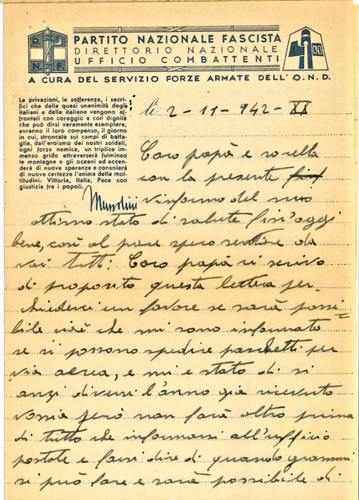 PARTITO NAZIONALE FASCISTA
DIRETTORIO NAZIONALE
UFFICIO COMBATTENTI
A CURA DEL SERVIZIO FORZE ARMATE DELL'O.N.D.
Le privazioni, le sofferenze, i sacrifici che dalla quasi unanimità degli
italiani e delle italiane vengono affrontati con coraggio e con dignità
che può dirsi veramente esemplare,
avranno il loro compenso, il giorno
in cui, stroncata sui campi di battaglia, dall'eroismo dei nostri soldati,
ogni forza nemica, un triplice immenso grido attraverserà fulmineo
le montagne e gli oceani ed accenderà di nuove speranze e consolerà
di nuove certezze l'anima delle moltitudini: Vittoria, Italia, Pace con
giustizia fra i popoli.
Mussolini
li 2-11-942-XX
Caro papà e sorella
con la presente
v'informo del mio
ottimo stato di salute fin'oggi
bene, così al pace spero sentire da
voi tutti: Caro papà vi scrivo
di proposito questa lettera per
chiederci un favore se sarà possibile cioè che mi sono informato
se si possono spedire pacchetti per
via aerea, e mi è stato di si
anzi diversi l'anno già ricevuto
però non farà altro prima
di tutto che informarsi all'ufficio
postale e farsi dire di quando grammi
si può fare e sarà possibile di